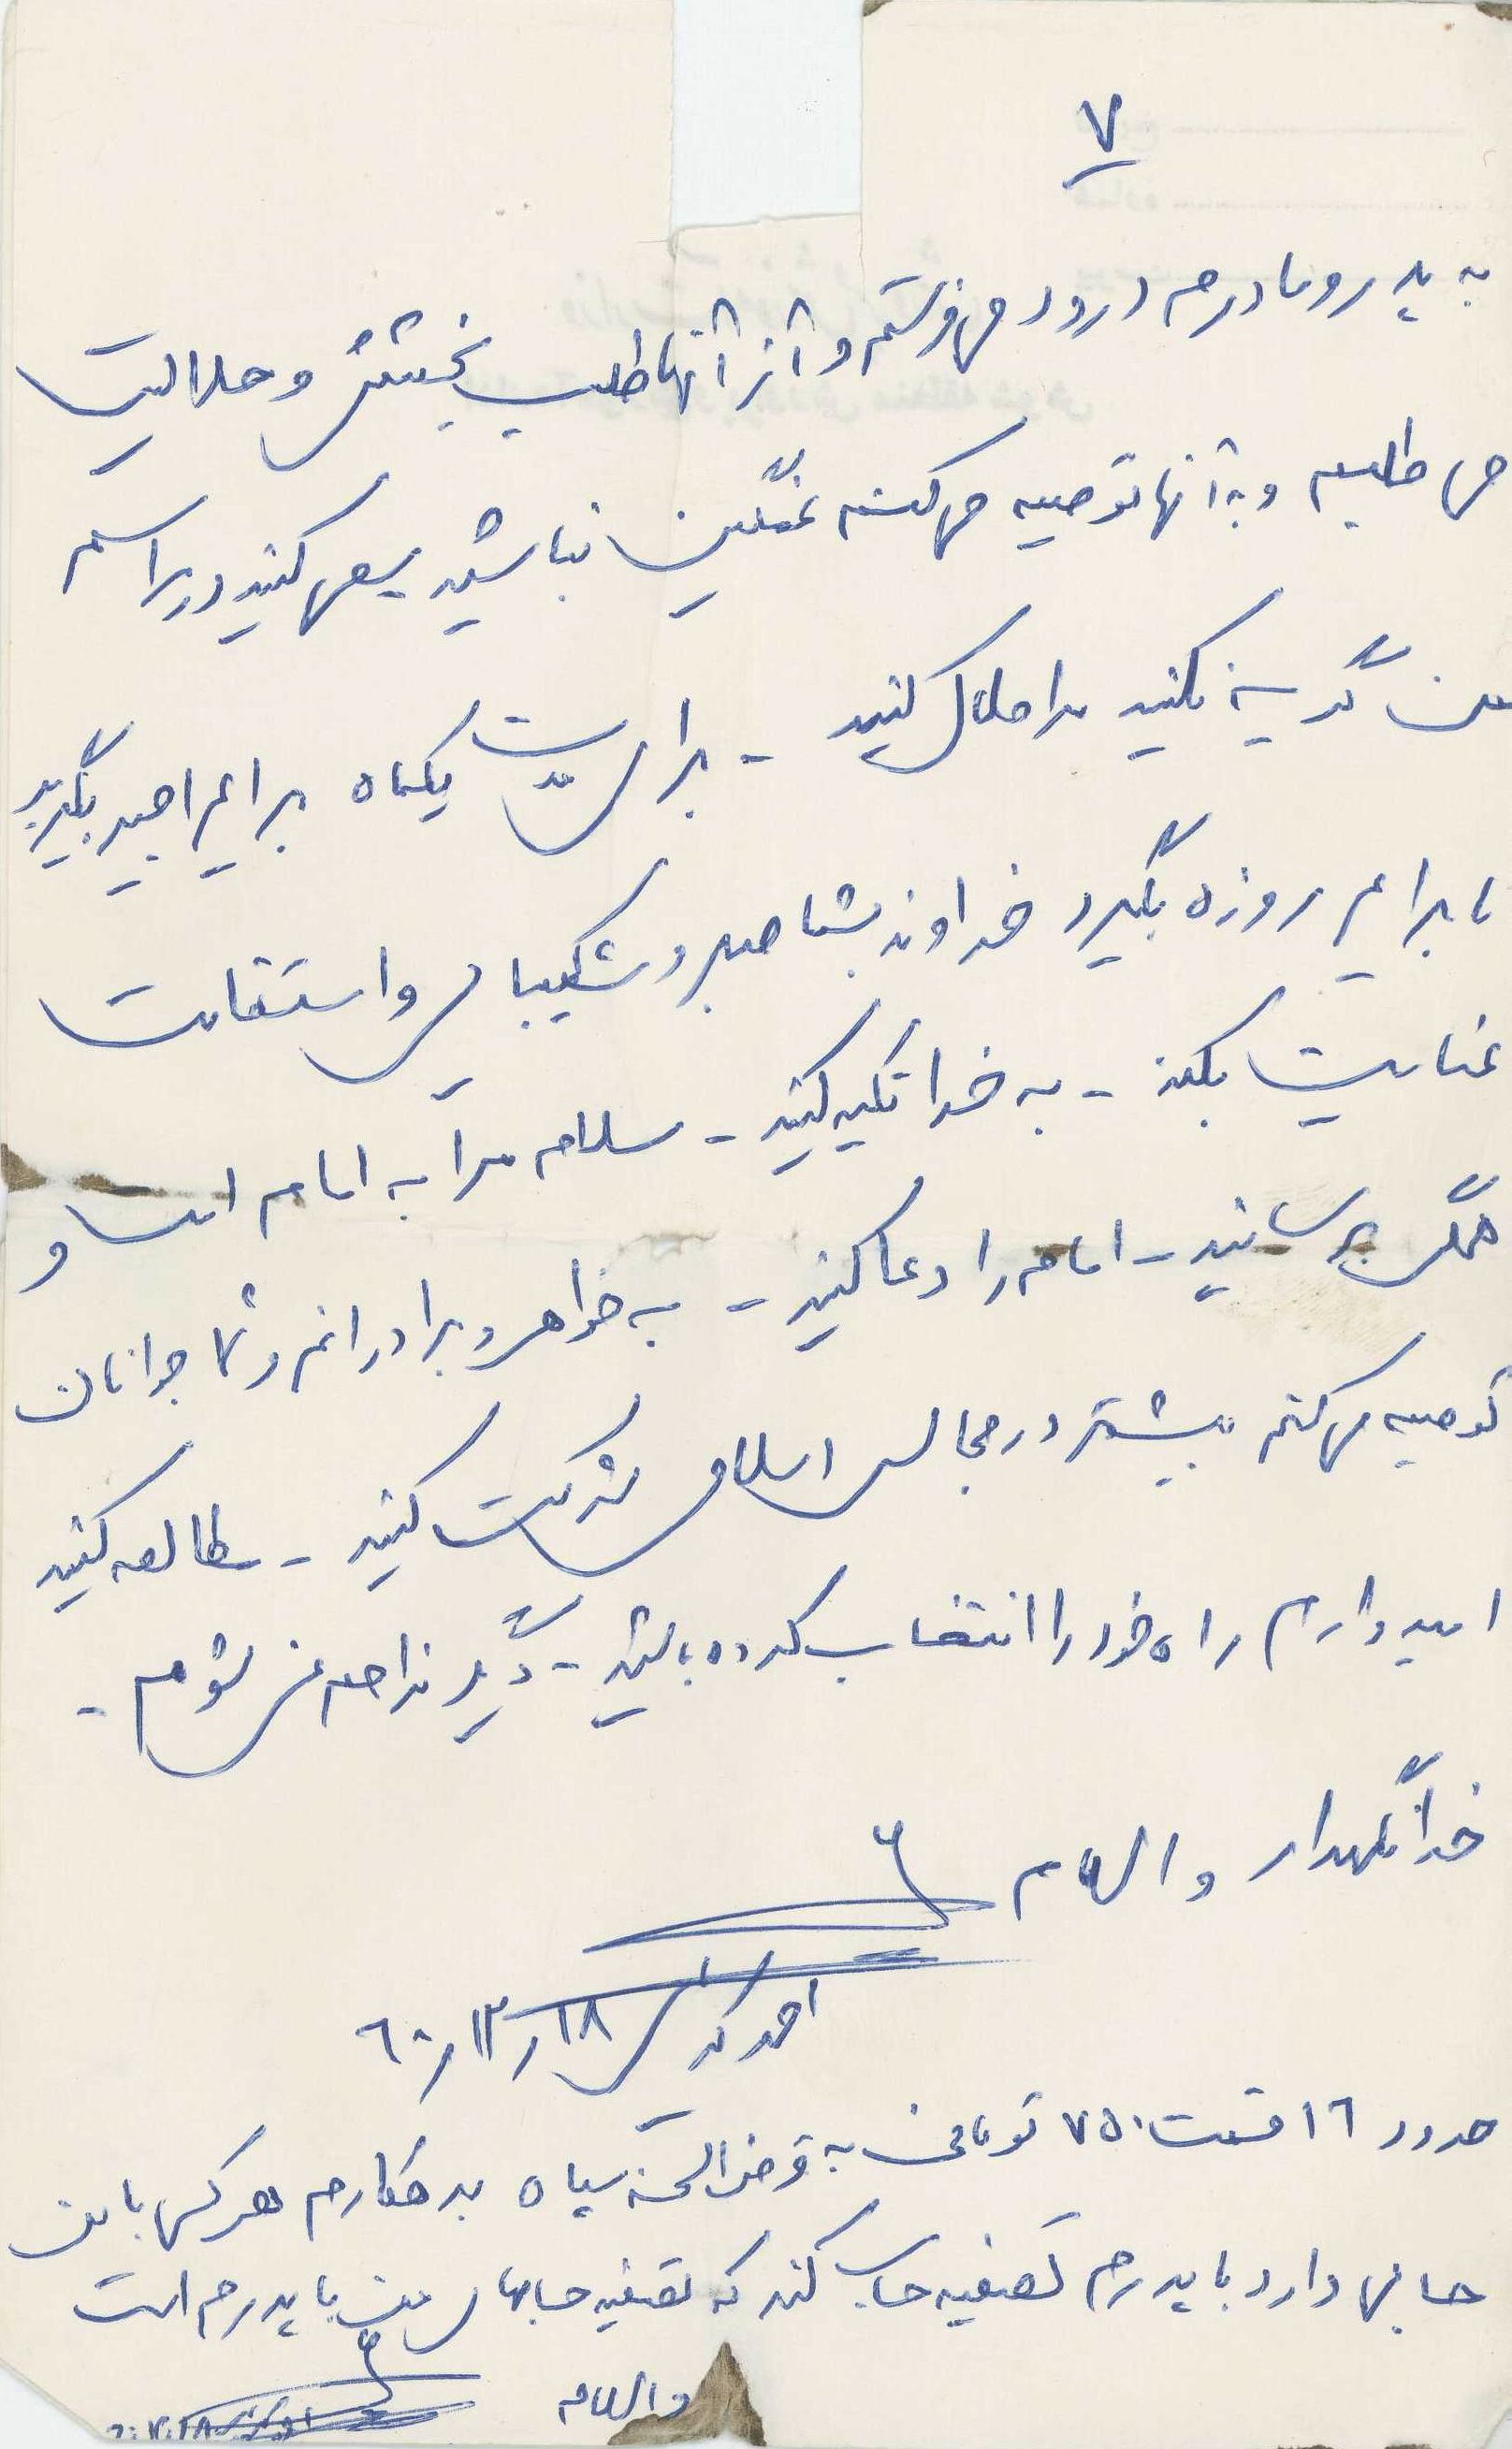 ۷
به پدر و مادرم درود می فرستم و از آنها طلب بخشش و حلالیت
می طلبم و به آنها توصیه می کنم غمگین نباشید سعی کنید در مراسم
من گریه نکنید مرا حلال کنید - برای مدت یکماه برایم اجیر بگیرید
تا برایم روزه بگیرد خداوند بشما صبر و شکیبایی و استقامت
عنایت بکند - به خدا تکیه کنید - سلام مرا به امام امت و
همگی برسانید - امام را دعا کنید - به خواهر و برادرانم و تمام جوانان
توصیه می کنم بیشتر در مجالس اسلامی شرکت کنید - مطالعه کنید
امیدوارم راه خود را انتخاب کرده باشید - دیگر مزاحم نمی شوم -
خدانگهدار والسلام
احمد ۶۰/۱۲/۱۸
حدود ۱۶ قسمت ۷۵۰ تومانی به قرض الحسنه سپاه بدهکارم هر کس با من
حسابی دارد با پدرم تصفیه حساب کند که تصفیه حسابهای من با پدرم است
والسلام